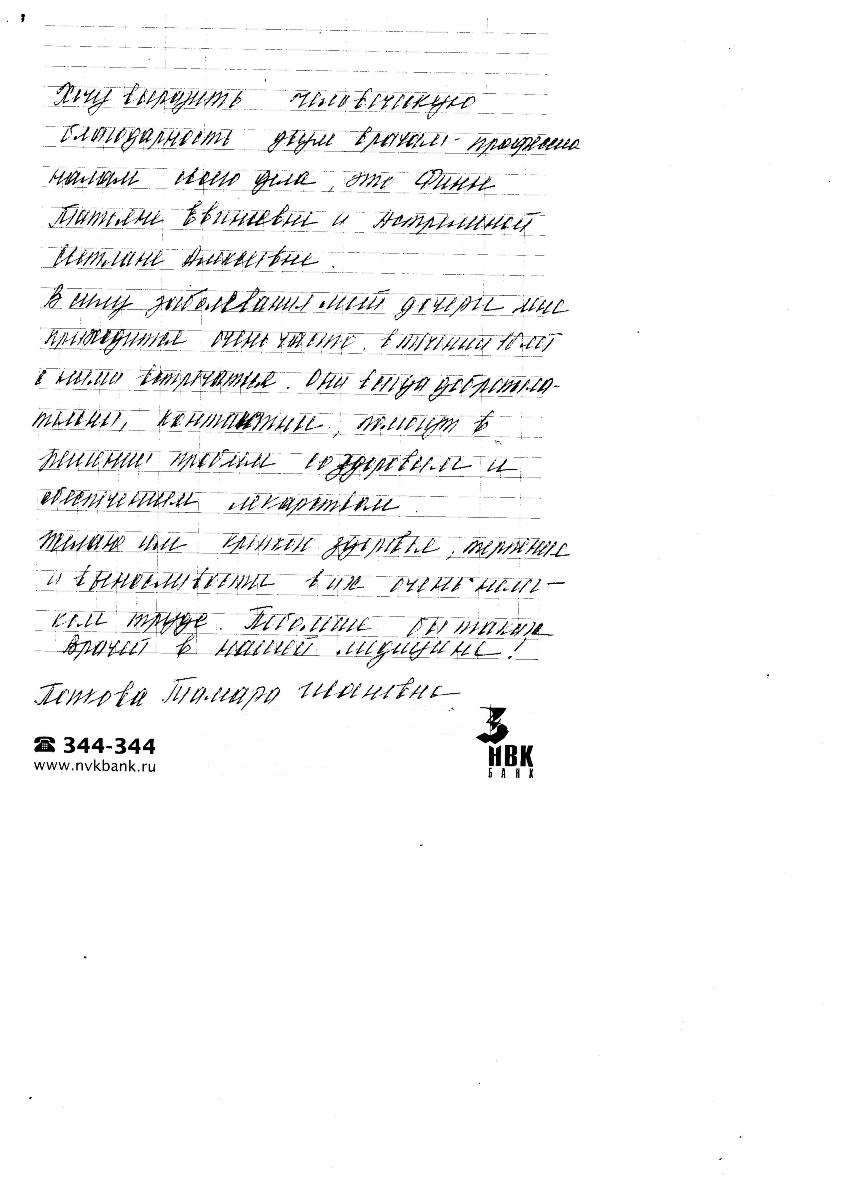 Хочу выразить человеческую
благодарность двум врачам - професио
налам своего дела, это Финк
Татьяне Евгиневне и
Светлане Алексеевне.
В силу заболевания моей дочери мне
приходится очень часто, в течении 10 лет
с ними встречаться. Они всегда доброжела-
тельны, контактные, помогут в
решении проблем со здоровьем и
обеспечением лекарством.
Желаю им крепкон здоровья, терпения
и выносливости в их очень нелег-
ком труде. Побольше бы таких
врачей в нашей медицине!
Тамара Ивановна
344-344
www.nvkbank.ru
НВК
БАНК